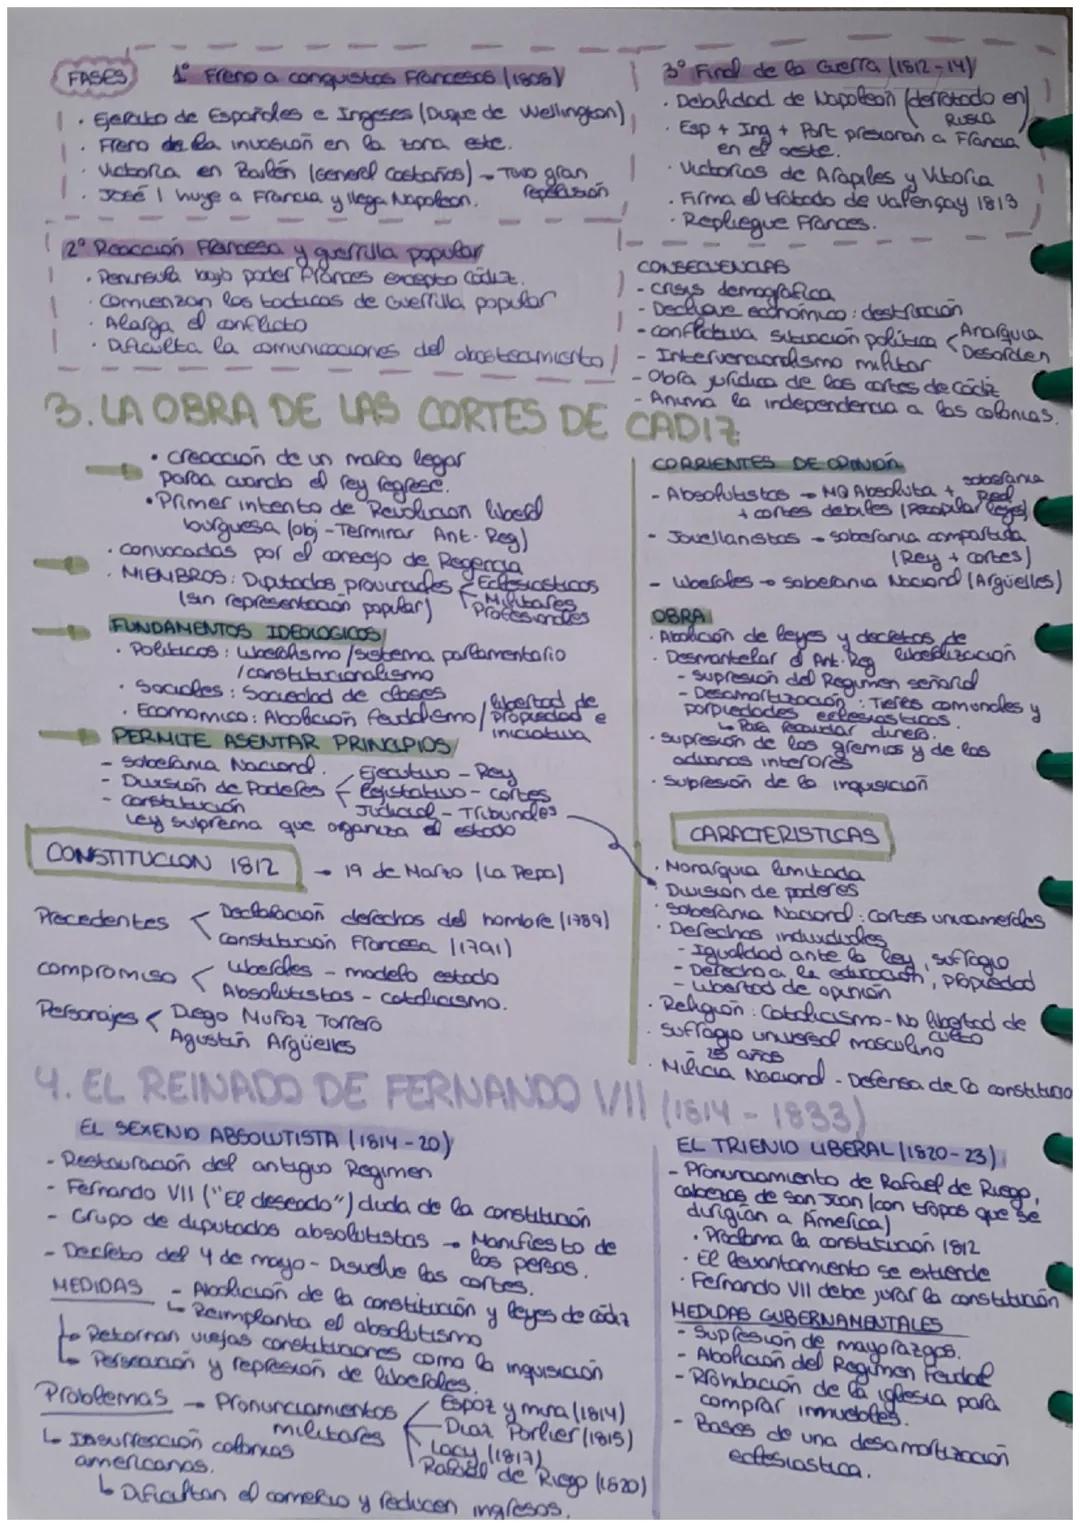 FASES
1º Freno a conquistas Francesas (1808)
· Ejercito de Españoles e Ingeses (Duque de Wellington)
· Freno de la invasión en la zona este.
· Victoria en Bailén (General Castaños) → Tuvo gran
repercusión
· José I huye a Francia y llega Napoleon.
2º Reacción Francesa y guerrilla popular
· Peninsula bajo poder Frances excepto Cádiz.
· Comienzan las tacticas de Guerrilla popular
· Alarga el conflicto
· Dificulta la comunicaciones del abastecimiento
3º Final de la Guerra (1812-14)
· Debalidad de Napoleón (derrotado en
RUSIA
· Esp + Ing + Port presionan a Francia
en el oeste.
· Victorias de Arapiles y Vitoria
· Firma el tratado de Valençay 1813
· Repliegue Frances.
CONSECUENCIAS
- Crisis demografica
- Declive económico: destrucción
- Conflictiva situación política < Anarquia
Desorden
- Intervencionalismo militar
- Obra jurídica de las cortes de Cádiz
- Anima la independencia a las colonias.
3. LA OBRA DE LAS CORTES DE CADIZ
• Creacción de un marco legar
para cuando el rey regrese.
• Primer intento de Revolucion liberal
burguesa (obj - Terminar Ant. Reg)
· Convocadas por el consejo de Regencia
· MIEMBROS: Diputados provinciales < Eclesiasticos
Militares
Profesionales
(sin representación popular)
FUNDAMENTOS IDEOLOGICOS
· Politicos: Liberalismo / sistema parlamentario
/ constitucionalismo
· Sociales: Sociedad de clases
· Economico: Abolición feudalismo / libertad de
propiedad e
iniciativa
PERMITE ASENTAR PRINCIPIOS
- Soberania Nacional.
- División de Poderes < Ejecutivo - Rey
Legislativo - cortes
Judicial - Tribunales
- Constitución
Ley suprema que organiza el estado
CORRIENTES DE OPINIÓN
- Absolutistas → MQ Absoluta + soberania
Real
+ cortes debiles (Recopilar leyes)
- Jovellanistas → soberania compartida
(Rey + cortes)
- Liberales → soberania Nacional (Argüelles)
OBRA
· Abolición de leyes y decretos de
liberalización
· Desmantelar el Ant. Reg
- Supresión del Regimen señorial
- Desamortización: Tieres comunales y
porpiedades eclesiasticas.
↳ Para recaudar dinero.
· Supresión de los gremios y de las
aduanas interores
· Supresión de la inquisición
CONSTITUCION 1812 → 19 de Marzo (La Pepa)
Precedentes < Declaración derechos del hombre (1789)
Constitución Francesa (1791)
Compromiso < Liberales - modelo estado
Absolutistas - catolicismo.
Personajes < Diego Muñoz Torrero
Agustín Argüelles
CARACTERISTICAS
· Monarquia limitada
· División de poderes
· Soberania Nacional: Cortes unicamerales
· Derechos individuales
- Igualdad ante la ley, sufragio
- Derecho a la educación, propiedad
- Libertad de opinión
· Religión: Catolicismo - No libertad de
culto
· Sufragio universal masculino
25 años
· Milicia Nacional - Defensa de la constitucio
4. EL REINADO DE FERNANDO VII (1814 - 1833)
EL SEXENIO ABSOLUTISTA (1814-20)
- Restauración del antiguo Regimen
- Fernando VII ("El deseado") duda de la constitución
- Grupo de diputados absolutistas → Manifiesto de
los persas.
- Decreto del 4 de mayo - Disuelve las cortes.
MEDIDAS - Abolición de la constitución y leyes de cádiz
↳ Reimplanta el absolutismo
↳ Retornan viejas constituciones como la inquisición
↳ Persecución y represión de liberales.
Problemas → Pronunciamientos
militares
Espoz y mina (1814)
Diaz Porlier (1815)
Lacy (1817)
Rafael de Riego (1820)
↳ Insurrención colonias
americanas.
↳ Dificultan el comercio y reducen ingresos.
EL TRIENIO LIBERAL (1820-23)
- Pronunciamiento de Rafael de Riego,
cabezas de San Juan (con tropas que se
dirigían a America)
· Proclama la constitución 1812
· El levantamiento se extiende
· Fernando VII debe jurar la constitución
MEDIDAS GUBERNAMENTALES
- Supresión de mayorazgos.
- Abolición del Regimen Feudal
- Prohibación de la iglesia para
comprar inmuebles.
- Bases de una desamortización
eclesiastica.